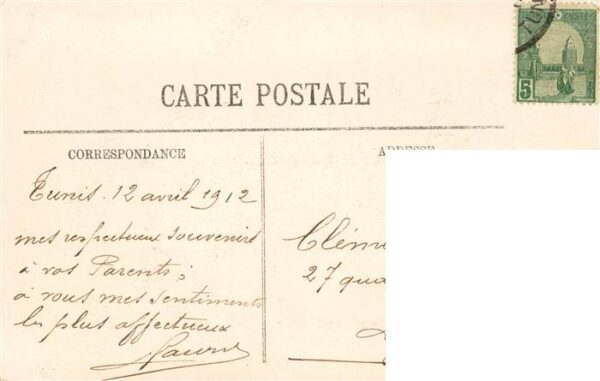 CARTE POSTALE
5
POSTES
TUN
CORRESPONDANCE
ADRESSE
Tunis. 12 avril 1912
mes respectueux souvenirs
à vos Parents;
à vous mes sentiments
les plus affectueux
Clém
27 qua